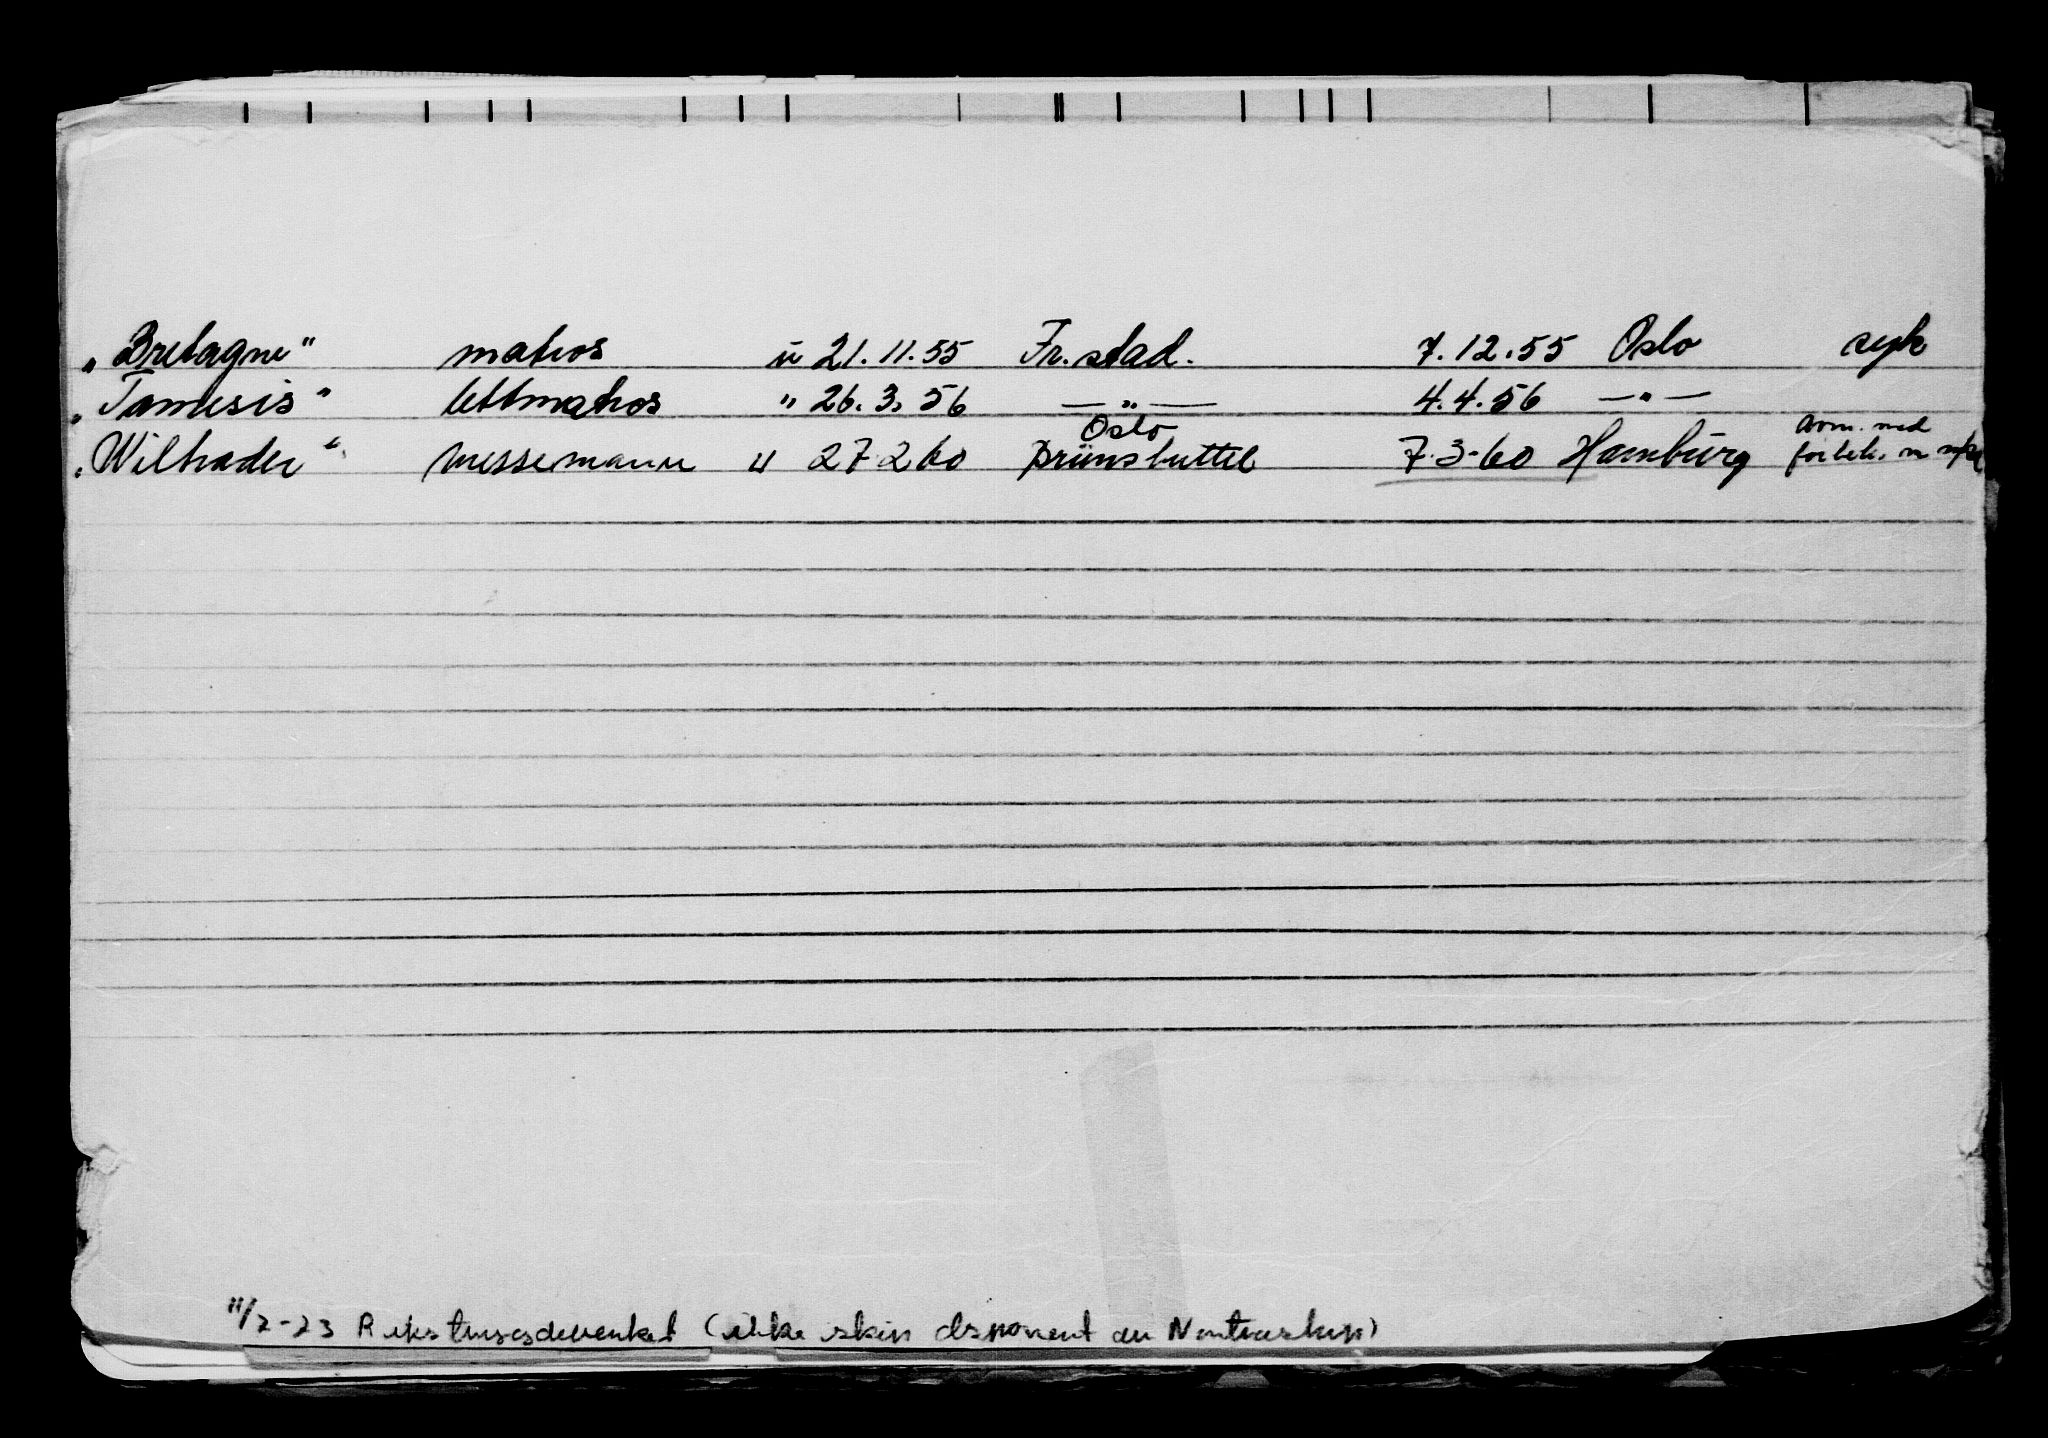 "Bretagne" matros u 21.11.55 Fr.stad. 7.12.55 Oslo syk
"Tamesis" lettmatros " 26.3.56 — " — 4.4.56 — " —
"Wiltrader" messemann u 27 2 60 Oslo Brünsbuttel 7-3-60 Hamburg avm. med
11/2-23 (ikke skip disponent av Nortraship)